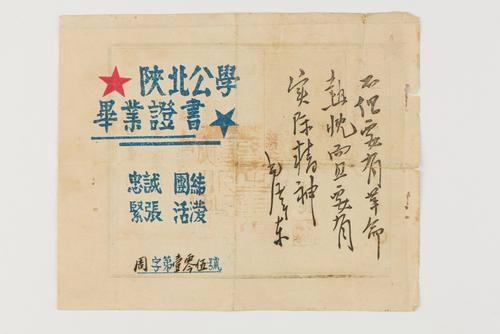 陝北公學
畢業證書
忠誠 團結
緊張 活潑
周字第壹零伍號
不但要有革命
热忱而且要有
实际精神
毛泽东